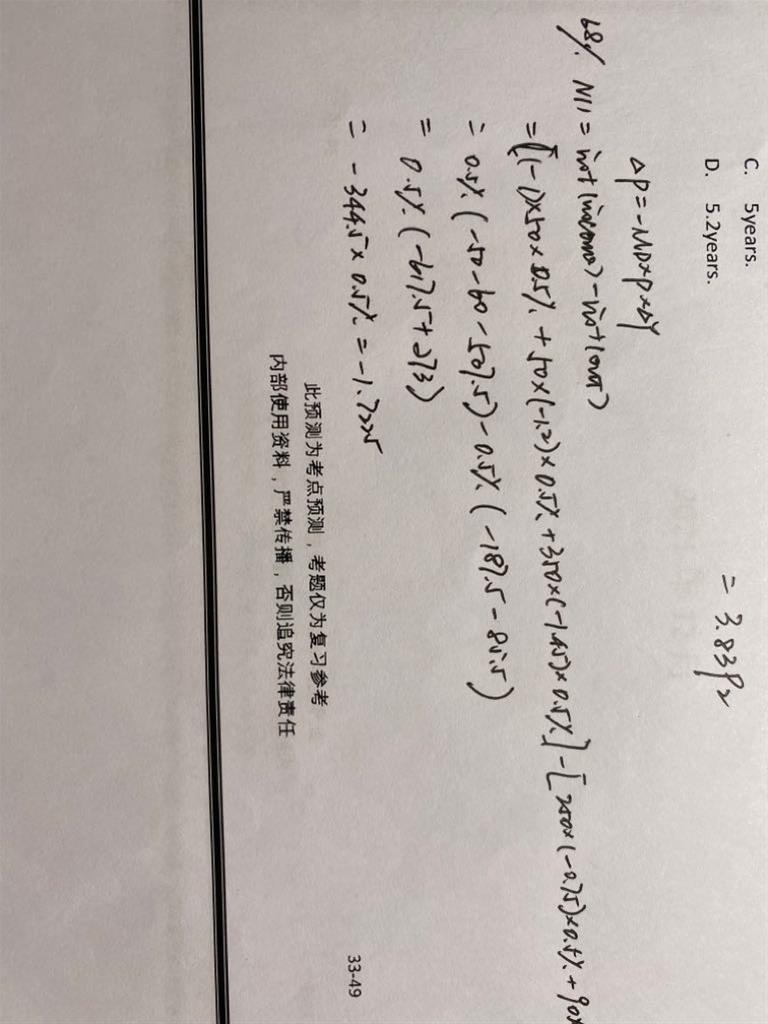 C. 5years.
D. 5.2years.
= 3.8392
ΔP = -MD×P×ΔY
68% NII = int(income) - int(cost)
= [(-1)×50×0.5% + 50×(-1.2)×0.5% + 350×(-1.45)×0.5%] - [250×(-0.75)×0.5% + 90×
= 0.5% (-50-60-507.5) - 0.5% (-187.5-85.5)
= 0.5% (-617.5+273)
= -344.5 × 0.5% = -1.7225
此预测为考点预测，考题仅为复习参考
内部使用资料，严禁传播，否则追究法律责任
33-49